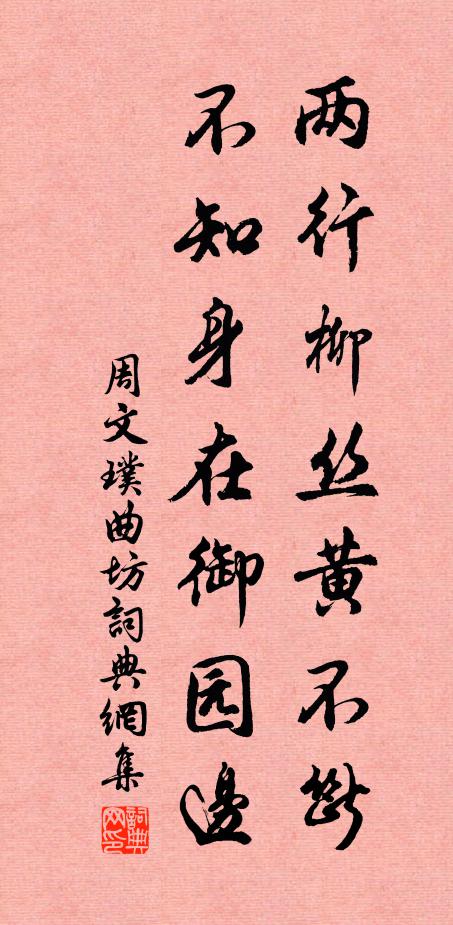 两行柳丝黄不断
不知身在御园邊
周文璞曲坊詞典網集
詞典网印